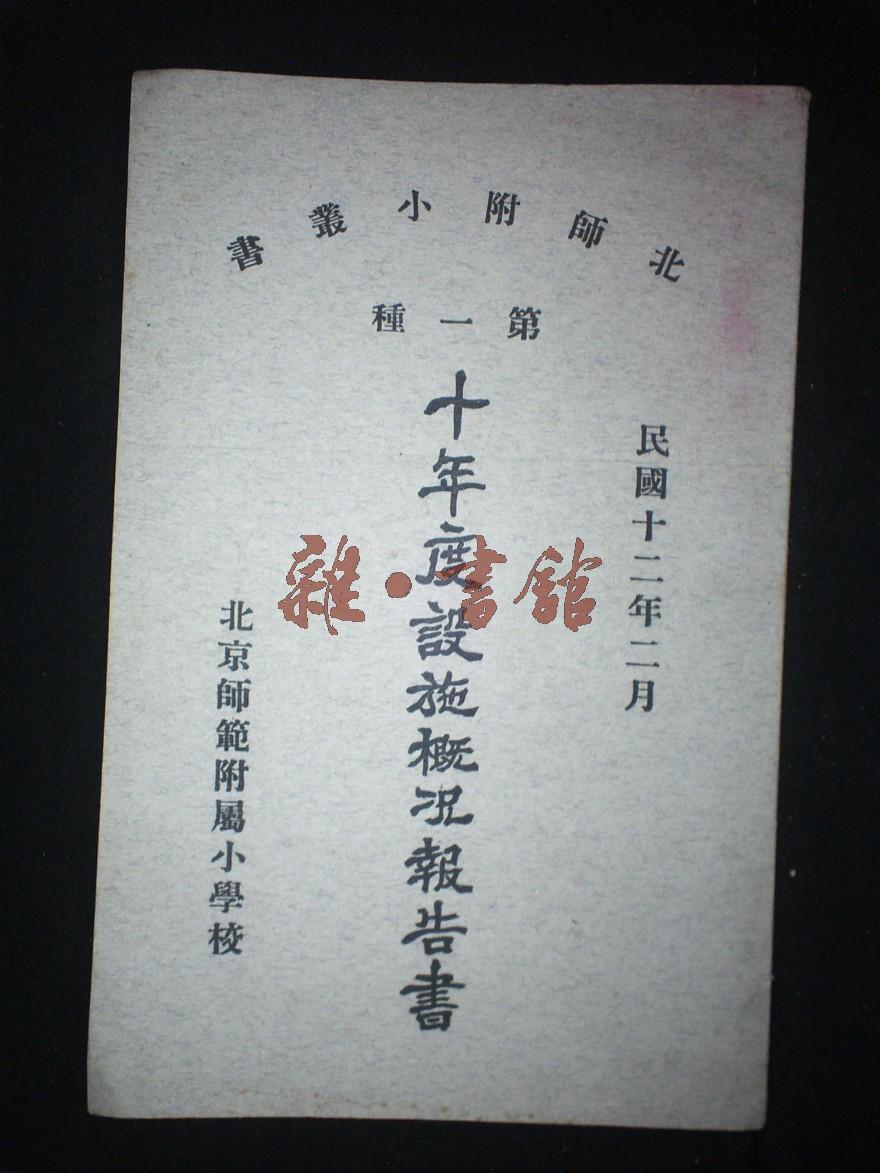 北師附小叢書
第一種
民國十二年二月
十年度設施概况報告書
北京師範附屬小學校
雜·書館